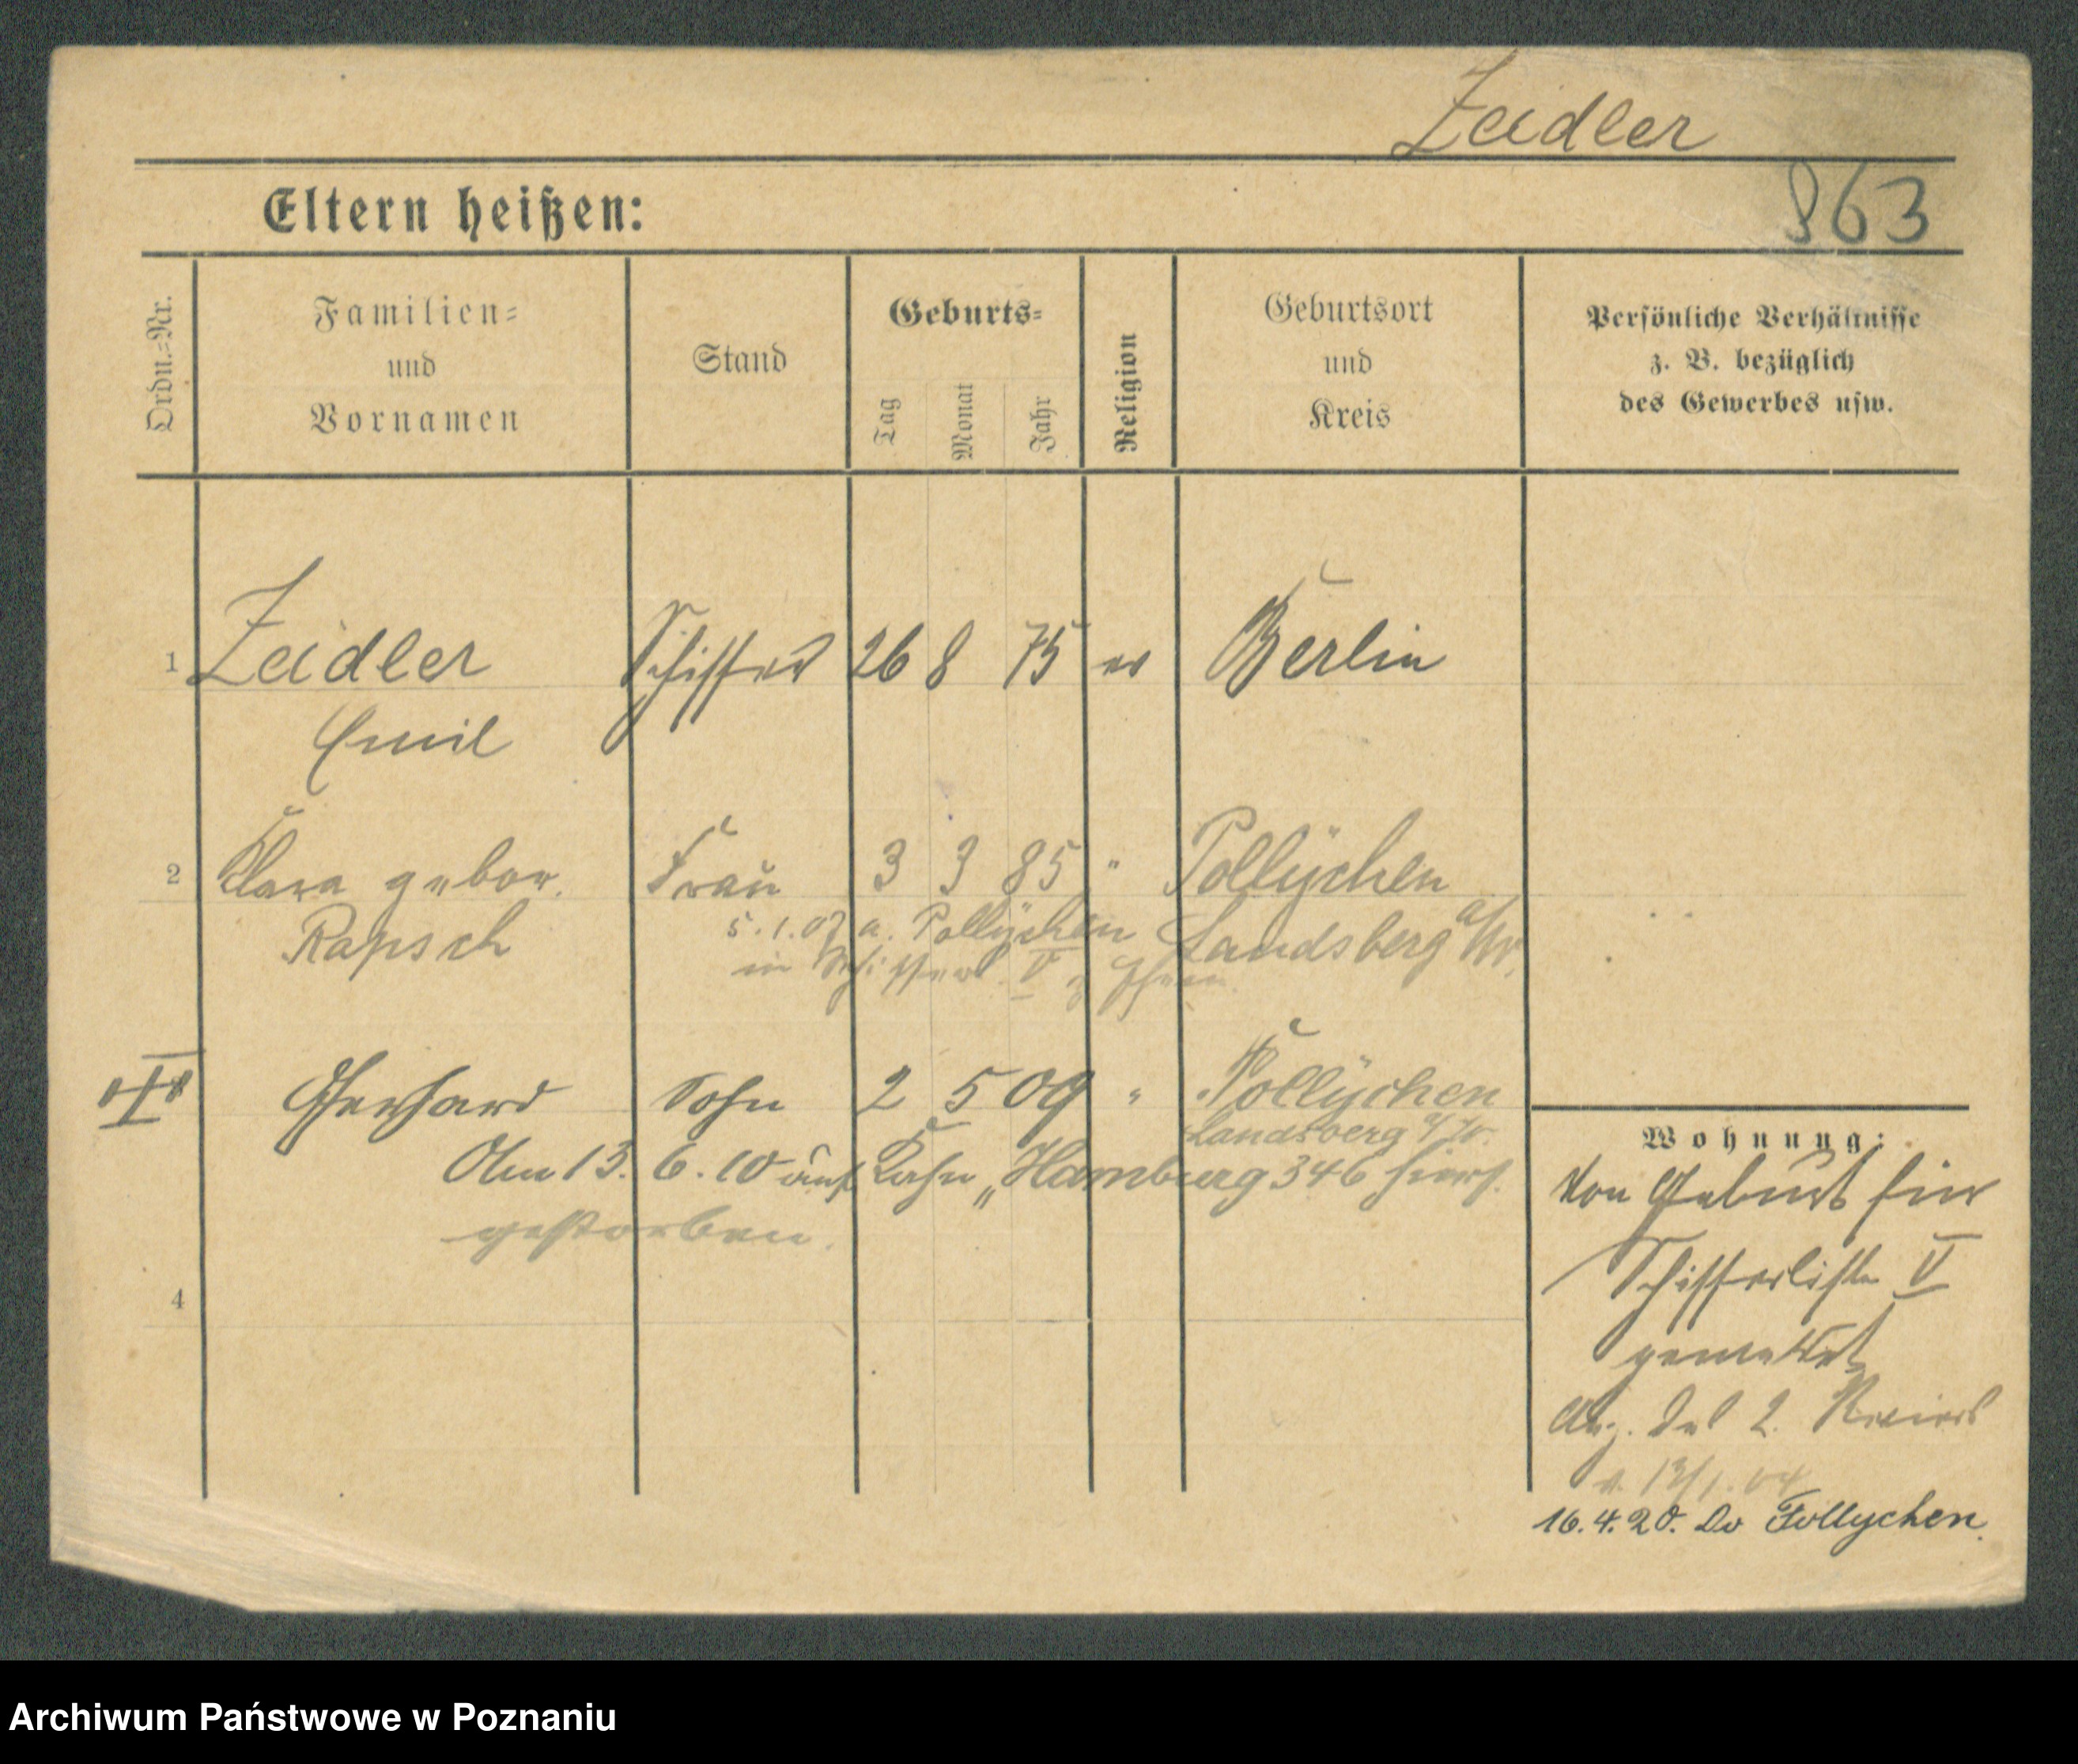 Zeidler
863
Eltern heißen:
Ordn.=Nr.
Familien=
und
Vornamen
Stand
Geburts=
Tag
Monat
Jahr
Religion
Geburtsort
und
Kreis
Persönliche Verhältnisse
z. B. bezüglich
des Gewerbes usw.
1 Zeidler Schiffer 26 8 75 ev Berlin
Emil
2 Klara gebor. Frau 3 3 85 " Pollychen
Rapsch
Landsberg a/W.
5.1.07 a. Pollychen
in Schifferl. V
Gerhard Sohn 2 5 09 " Pollychen
Landsberg a/W.
Am 13. 6. 10 auf Kahn „Hamburg 346 hiers.
gestorben.
4
Wohnung:
Von Geburt hier
Schifferliste V
gemeldet
2. Reviers
16.4.20. Pollychen.
Archiwum Państwowe w Poznaniu